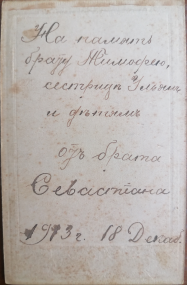 На память
брату Тимофею,
сестрице Ульян
и дѣтямъ
отъ брата
Севастіана
1913 г. 18 Декаб.